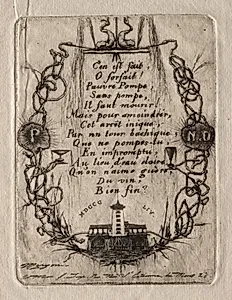 C'en est fait,
O forfait!
Pauvre Pompe,
Sans pompe,
Il faut mourir.
Mais pour amoindrir,
Cet arrêt inique,
Par un tour bachique,
Que ne pompes-tu,
En impromptu,
Au lieu d'eau claire,
Qu'on n'aime guère,
Du vin?
Bien fin?
P
N.D
MDCCC LIV.